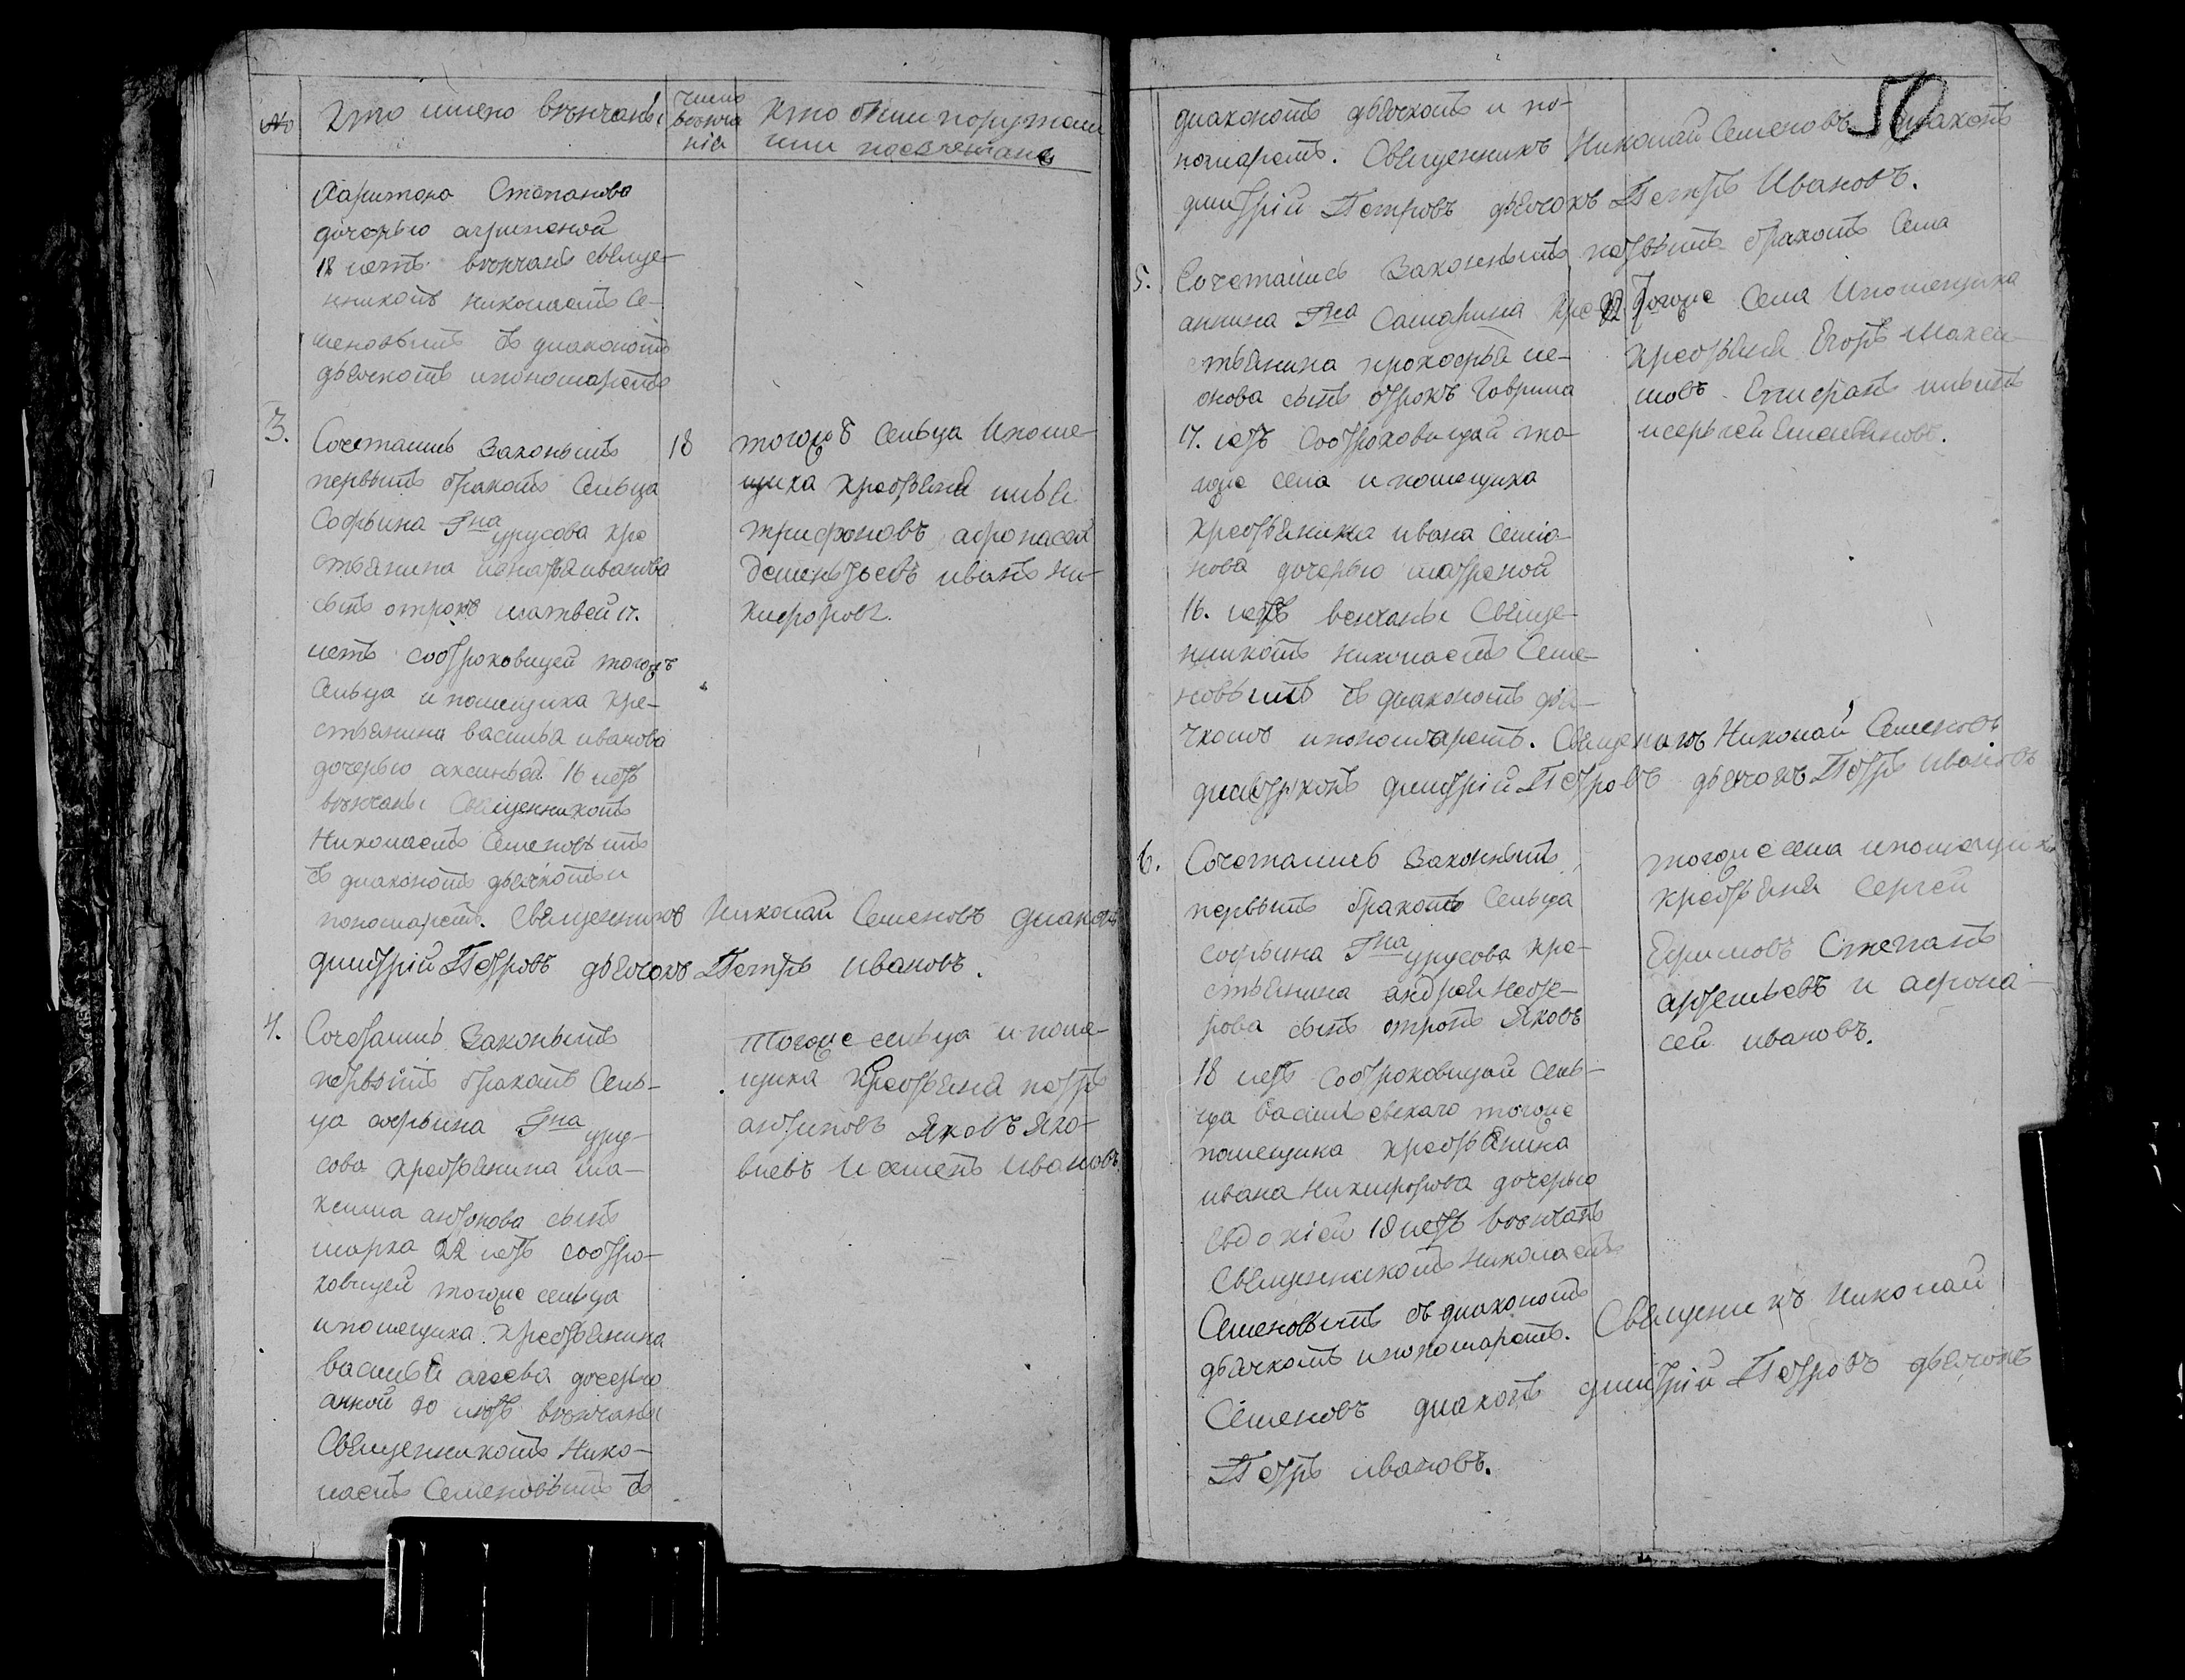 № Кто имено венчаны
число венча ния
Кто были поружами или поезжане
Харитона Степанова
дочерью агрипеной
18 летъ венчанъ свяще-
нникомъ николаемъ Се-
меновымъ съ диакономъ
дьячкомъ ипономаремъ
3. Сочетались Законымъ
первымъ бракомъ Сельца
Софьина Гна урусова кре
стьянина игнатья иванова
сынъ отрокъ матвей 17.
летъ сотроковицей тогожъ
Сельца и помещика кре-
стьянина василья иванова
дочерью аксиньей 16 летъ
венчаны Священникомъ
Николаемъ Семеновымъ
съ диакономъ дьячкомъ и
пономаремъ. Священникъ Николай Семеновъ диаконъ
димитрий Петровъ дьячокъ Петръ ивановъ.
18
тогожъ сельца ипоме-
щика крестьяня илья
трифоновъ афонасей
дементьевъ иванъ ни-
кифоровъ.
4. Сочетались Законымъ
первымъ бракомъ Сель-
ца софьина Гна уру-
сова крестьянина ма-
ксима антонова сынъ
марка 22 летъ сотро-
ковицей тогоже сельца
ипомещика крестьянина
василья агеева дочерью
анной 20 летъ венчаны
Священникомъ Нико-
лаемъ Семеновымъ съ
Тогоже сельца и поме-
щика Крестьяня петръ
антиповъ Яковъ Яко-
влевъ И семенъ ивановъ
50
диакономъ дьячкомъ и по-
номаремъ. Священникъ Николай Семеновъ диаконъ
димитрий Петровъ дьячокъ Петръ Ивановъ.
5. Сочетались Законнымъ первымъ бракомъ Села
аннина Гна Самарина кре
стьянина прокофья ле-
онова сынъ отрокъ Гаврила
17. летъ Сотроковицей то-
гоже села и помещика
крестьянина ивана семио-
нова дочерью матреной
16. летъ венчаны Свяще-
нникомъ николаемъ Семе-
новымъ съ диакономъ дья-
чкомъ ипономаремъ. Священикъ Николай Семеновъ
диаконъ димитрий Петровъ дьячокъ Петръ ивановъ
22
Тогоже Села Ипомещика
крестьяня Егоръ Макси-
мовъ
6. Сочетались Законнымъ
первымъ бракомъ Сельца
софьина Гна урусова кре-
стьянина андрея несте-
рова сынъ отрокъ Яковъ
18 летъ сотроковицей сель-
ца васильевскаго тогоже
помещика крестьянина
ивана Никифорова дочерью
Евдокией 18 летъ венчанъ
Священникомъ Николаемъ
Семеновымъ съ диакономъ
дьячкомъ ипономаремъ. Священикъ Николай
Семеновъ диаконъ димитрий Петровъ дьячокъ
Петръ ивановъ.
тогоже села ипомещика
крестьяня Сергей
Ефимовъ Степанъ
артемьевъ и афона-
сей ивановъ.